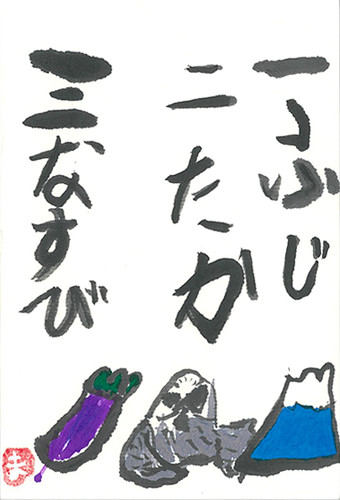 一ふじ
二たか
三なすび